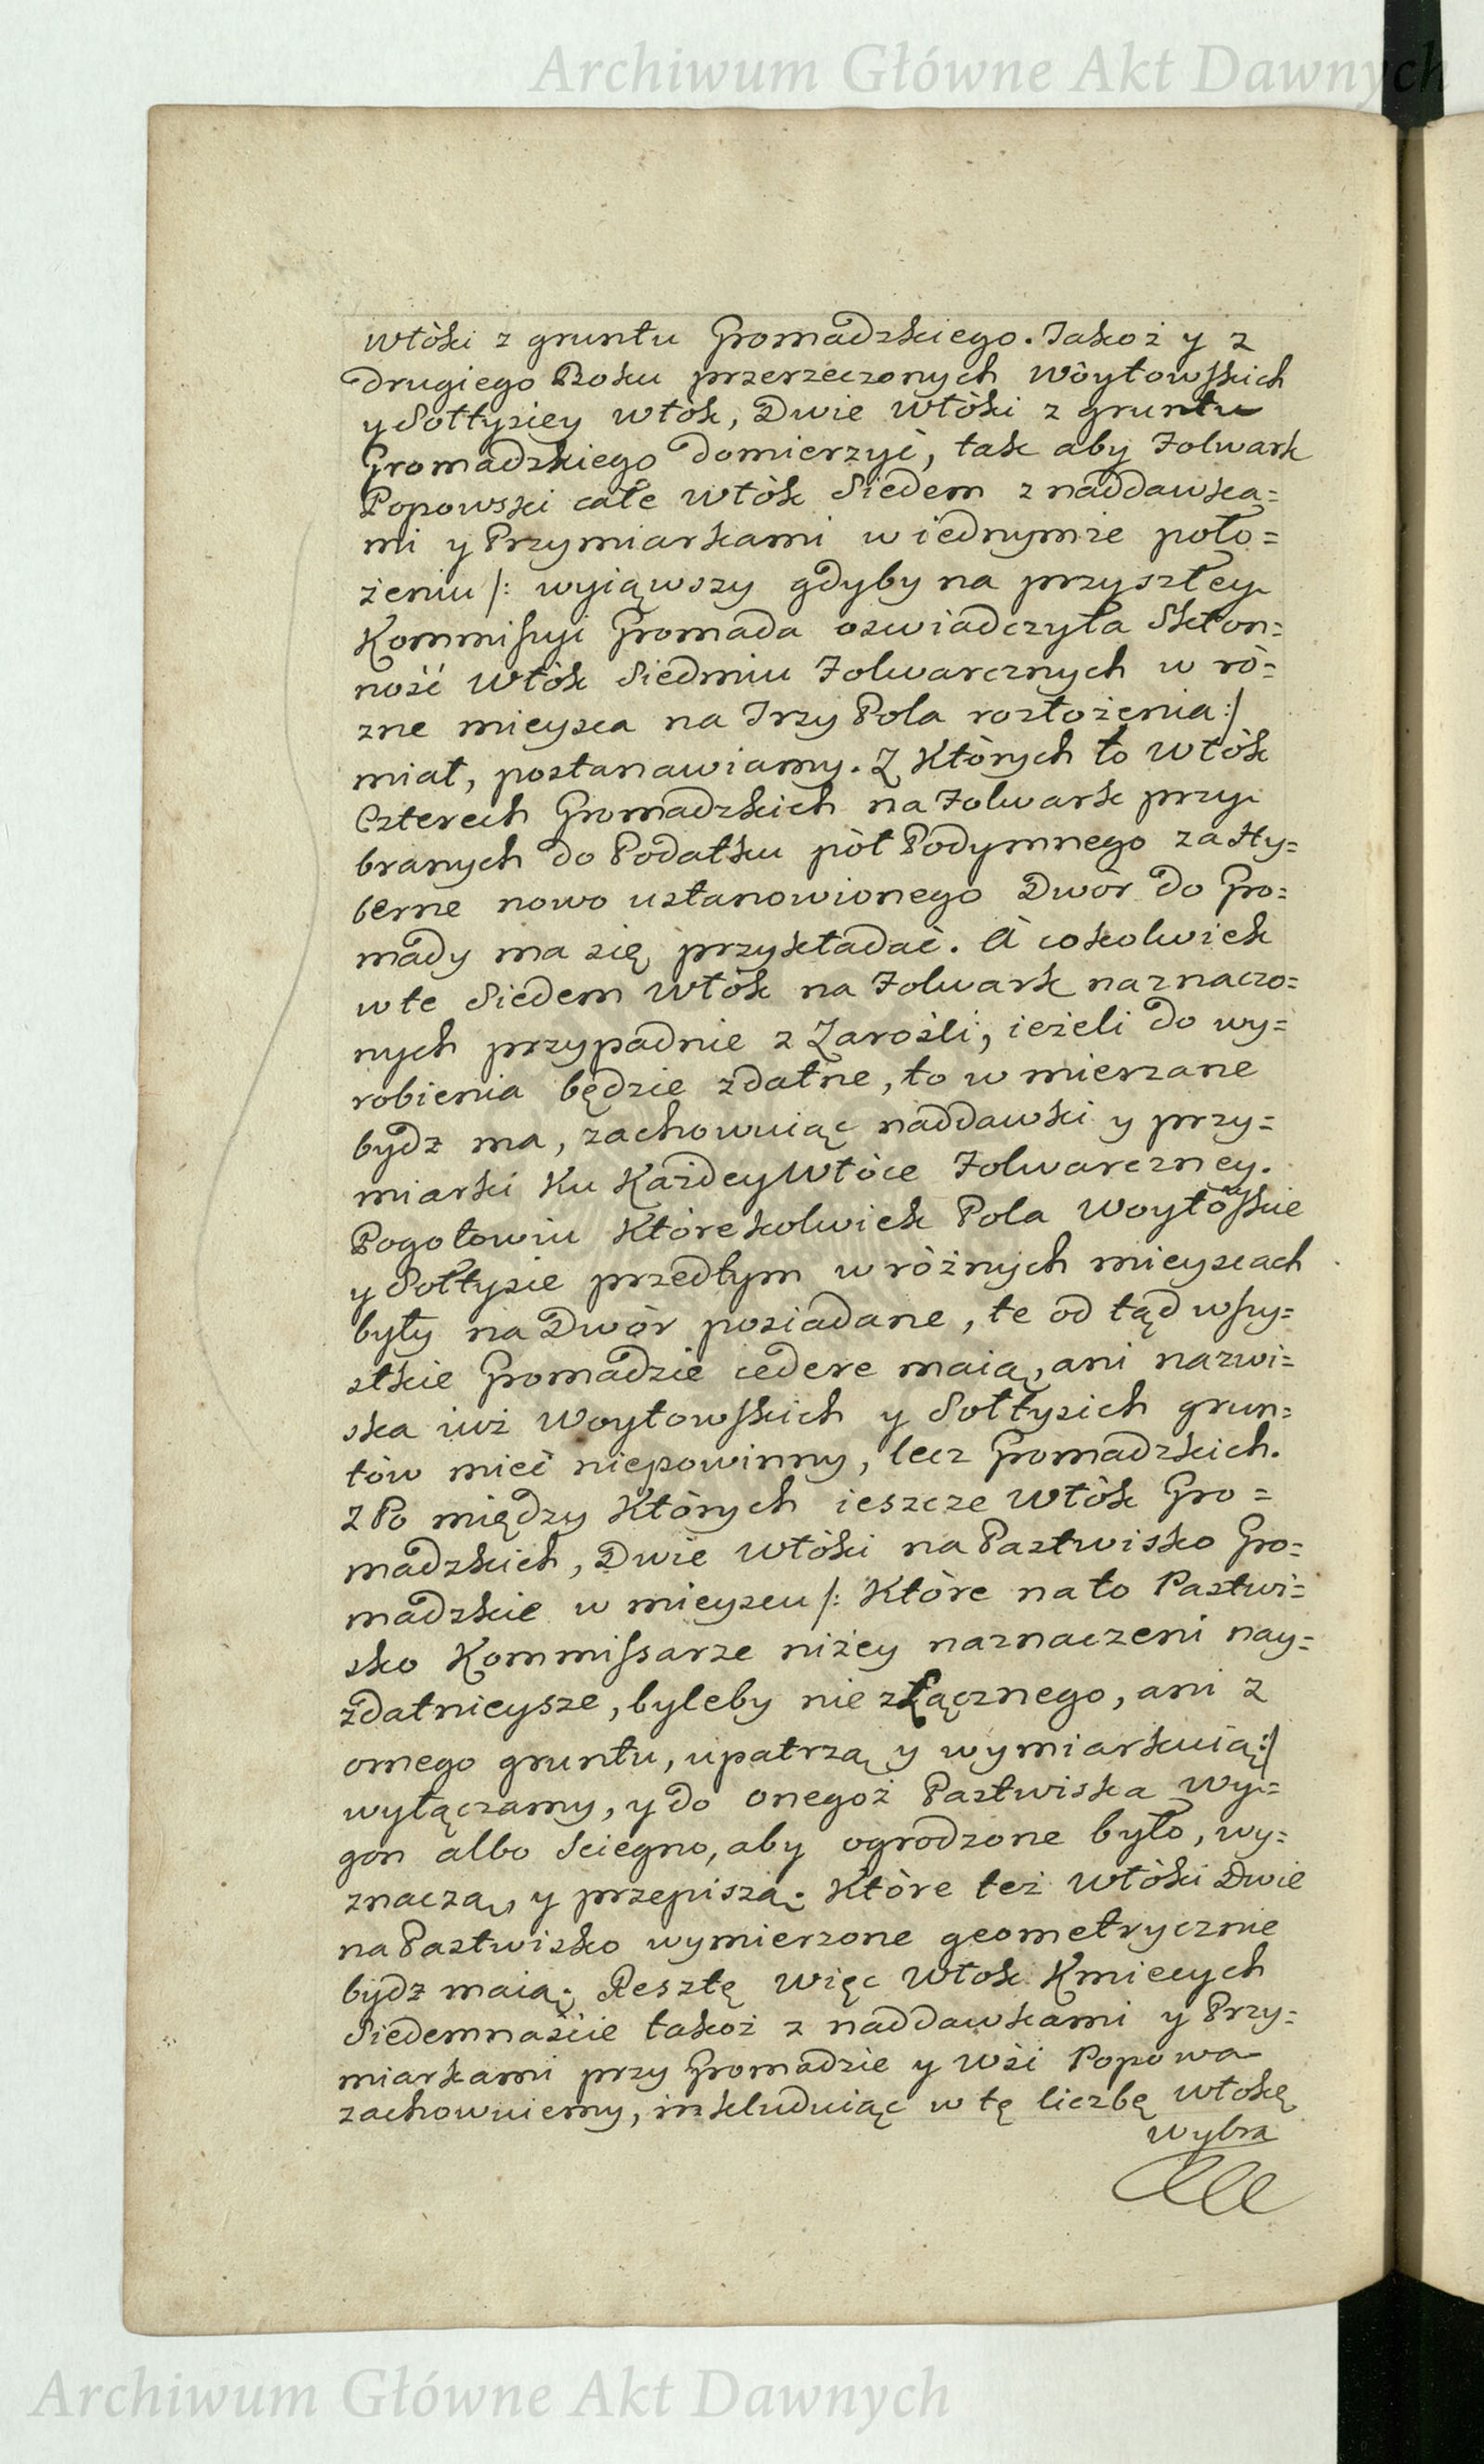 Archiwum Główne Akt Dawnych
włóki z gruntu Gromadzkiego. Jakoż y z
drugiego Boku przerzeczonych Wóytowskich
y Sołtysiey włók, Dwie Włóki z gruntu
Gromadzkiego domierzyć, tak aby Folwark
Popowski całe włók Siedem z naddawka=
mi y Przymiarkami w iednymże poło=
żeniu /: wyiąwszy gdyby na przyszłey
Kommissyi Gromada oswiadczyła Skłon=
ność Włók Siedmiu Folwarcznych w ró=
zne mieysca na Trzy Pola rozłożenia :/
miał, postanawiamy. Z Których to Włók
Czterech Gromadzkich na Folwark przy
branych do Podatku pół Podymnego za Hy=
berne nowo ustanowionego Dwór do Gro=
mady ma się przykładać. A cokolwiek
w te Siedem Włók na Folwark naznaczo=
nych przypadnie z Zarośli, ieżeli do wy=
robienia będzie zdatne, to w mierzane
bydz ma, zachowuiąc naddawki y przy=
miarki Ku Każdey Włóce Folwarczney.
Pogotowiu Którekolwiek Pola Woytowskie
y Sołtysie przedtym w różnych mieyscach
były na Dwór posiadane, te od tąd wszy=
stkie Gromadzie cedere maią, ani nazwi=
ska iuż Woytowskich y Sołtysich grun=
tów mieć niepowinny, lecz Gromadzkich.
Z Po między Których ieszcze Włók Gro=
madzkich, Dwie Włóki na Pastwisko Gro=
madzkie w mieyscu /: Które na to Pastwi=
sko Kommissarze niżey naznaczeni nay=
zdatnieysze, byleby nie złącznego, ani z
ornego gruntu, upatrzą y wymiarkuią :/
wyłączamy, y do onegoż Pastwiska wy=
gon albo sciegno, aby ogrodzone było, wy=
znaczą, y przepiszą. Które też Włóki Dwie
na Pastwisko wymierzone geometrycznie
bydz maią; Resztę więc Włók Kmiecych
Siedemnaście także z naddawkami y Przy=
miarkami przy Gromadzie y Wsi Popowa
zachowuiemy, inkluduiąc w tę liczbę włokę
wybra
Archiwum Główne Akt Dawnych